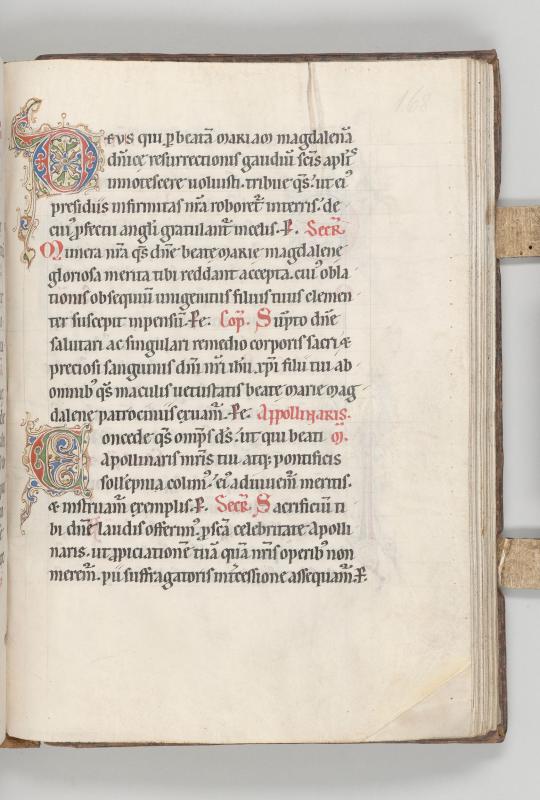 168
Deus qui p beatā mariam magdalenā
dn̄ice resurrectionis gaudiū scīs aplīs
innotescere uoluisti. tribue qs̄. ut eiꝰ
presidiis infirmitas nr̄a roboret̄ in terris. de
cuiꝰ pfectu angli gratulant̄ in celis. P. Secr̄.
Munera nr̄a qs̄ dn̄e beate marie magdalene
gloriosa merita tibi reddant accepta. cuiꝰ obla
tionis obsequiū unigenitus filius tuus clemen
ter suscepit inpensū. Pe. Cop̄. Sūpto dn̄e
salutari ac singulari remedio corporis sacri &
preciosi sanguinis dn̄i nr̄i ih̄u xp̄i filii tui ab
omnibꝰ qs̄ maculis uetustatis beate marie mag
dalene patrociniis eruam̄. Pe. Appollinaris.
Concede qs̄ omp̄s ds̄. ut qui beati m.
apollinaris mr̄is tui atq; pontificis
sollepnia colimꝰ. eiꝰ adiuuem̄ meritis.
& instruam̄ exemplis. P. Secr̄. Sacrificiū ti
bi dn̄e laudis offerimꝰ. p scā celebritate apolli
naris. ut ppiciationē tuā quā nr̄is operibꝰ non
merem̄. pii suffragatoris int̄cessione assequam̄. P.